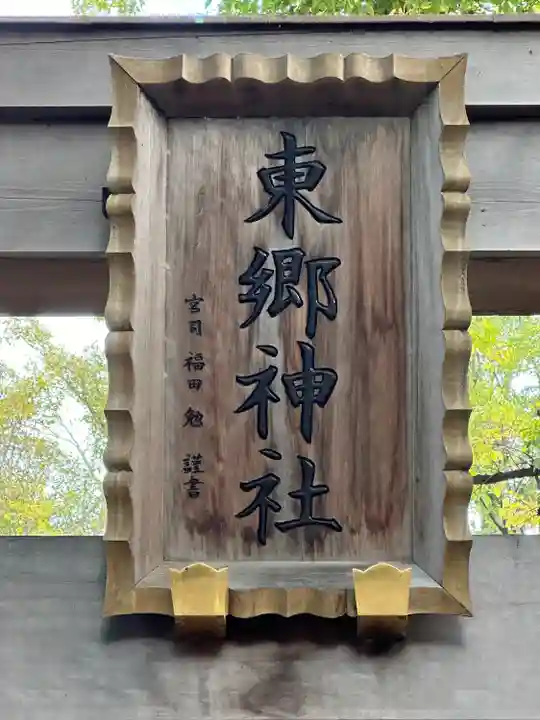 東郷神社
宮司 福田 勉 謹書